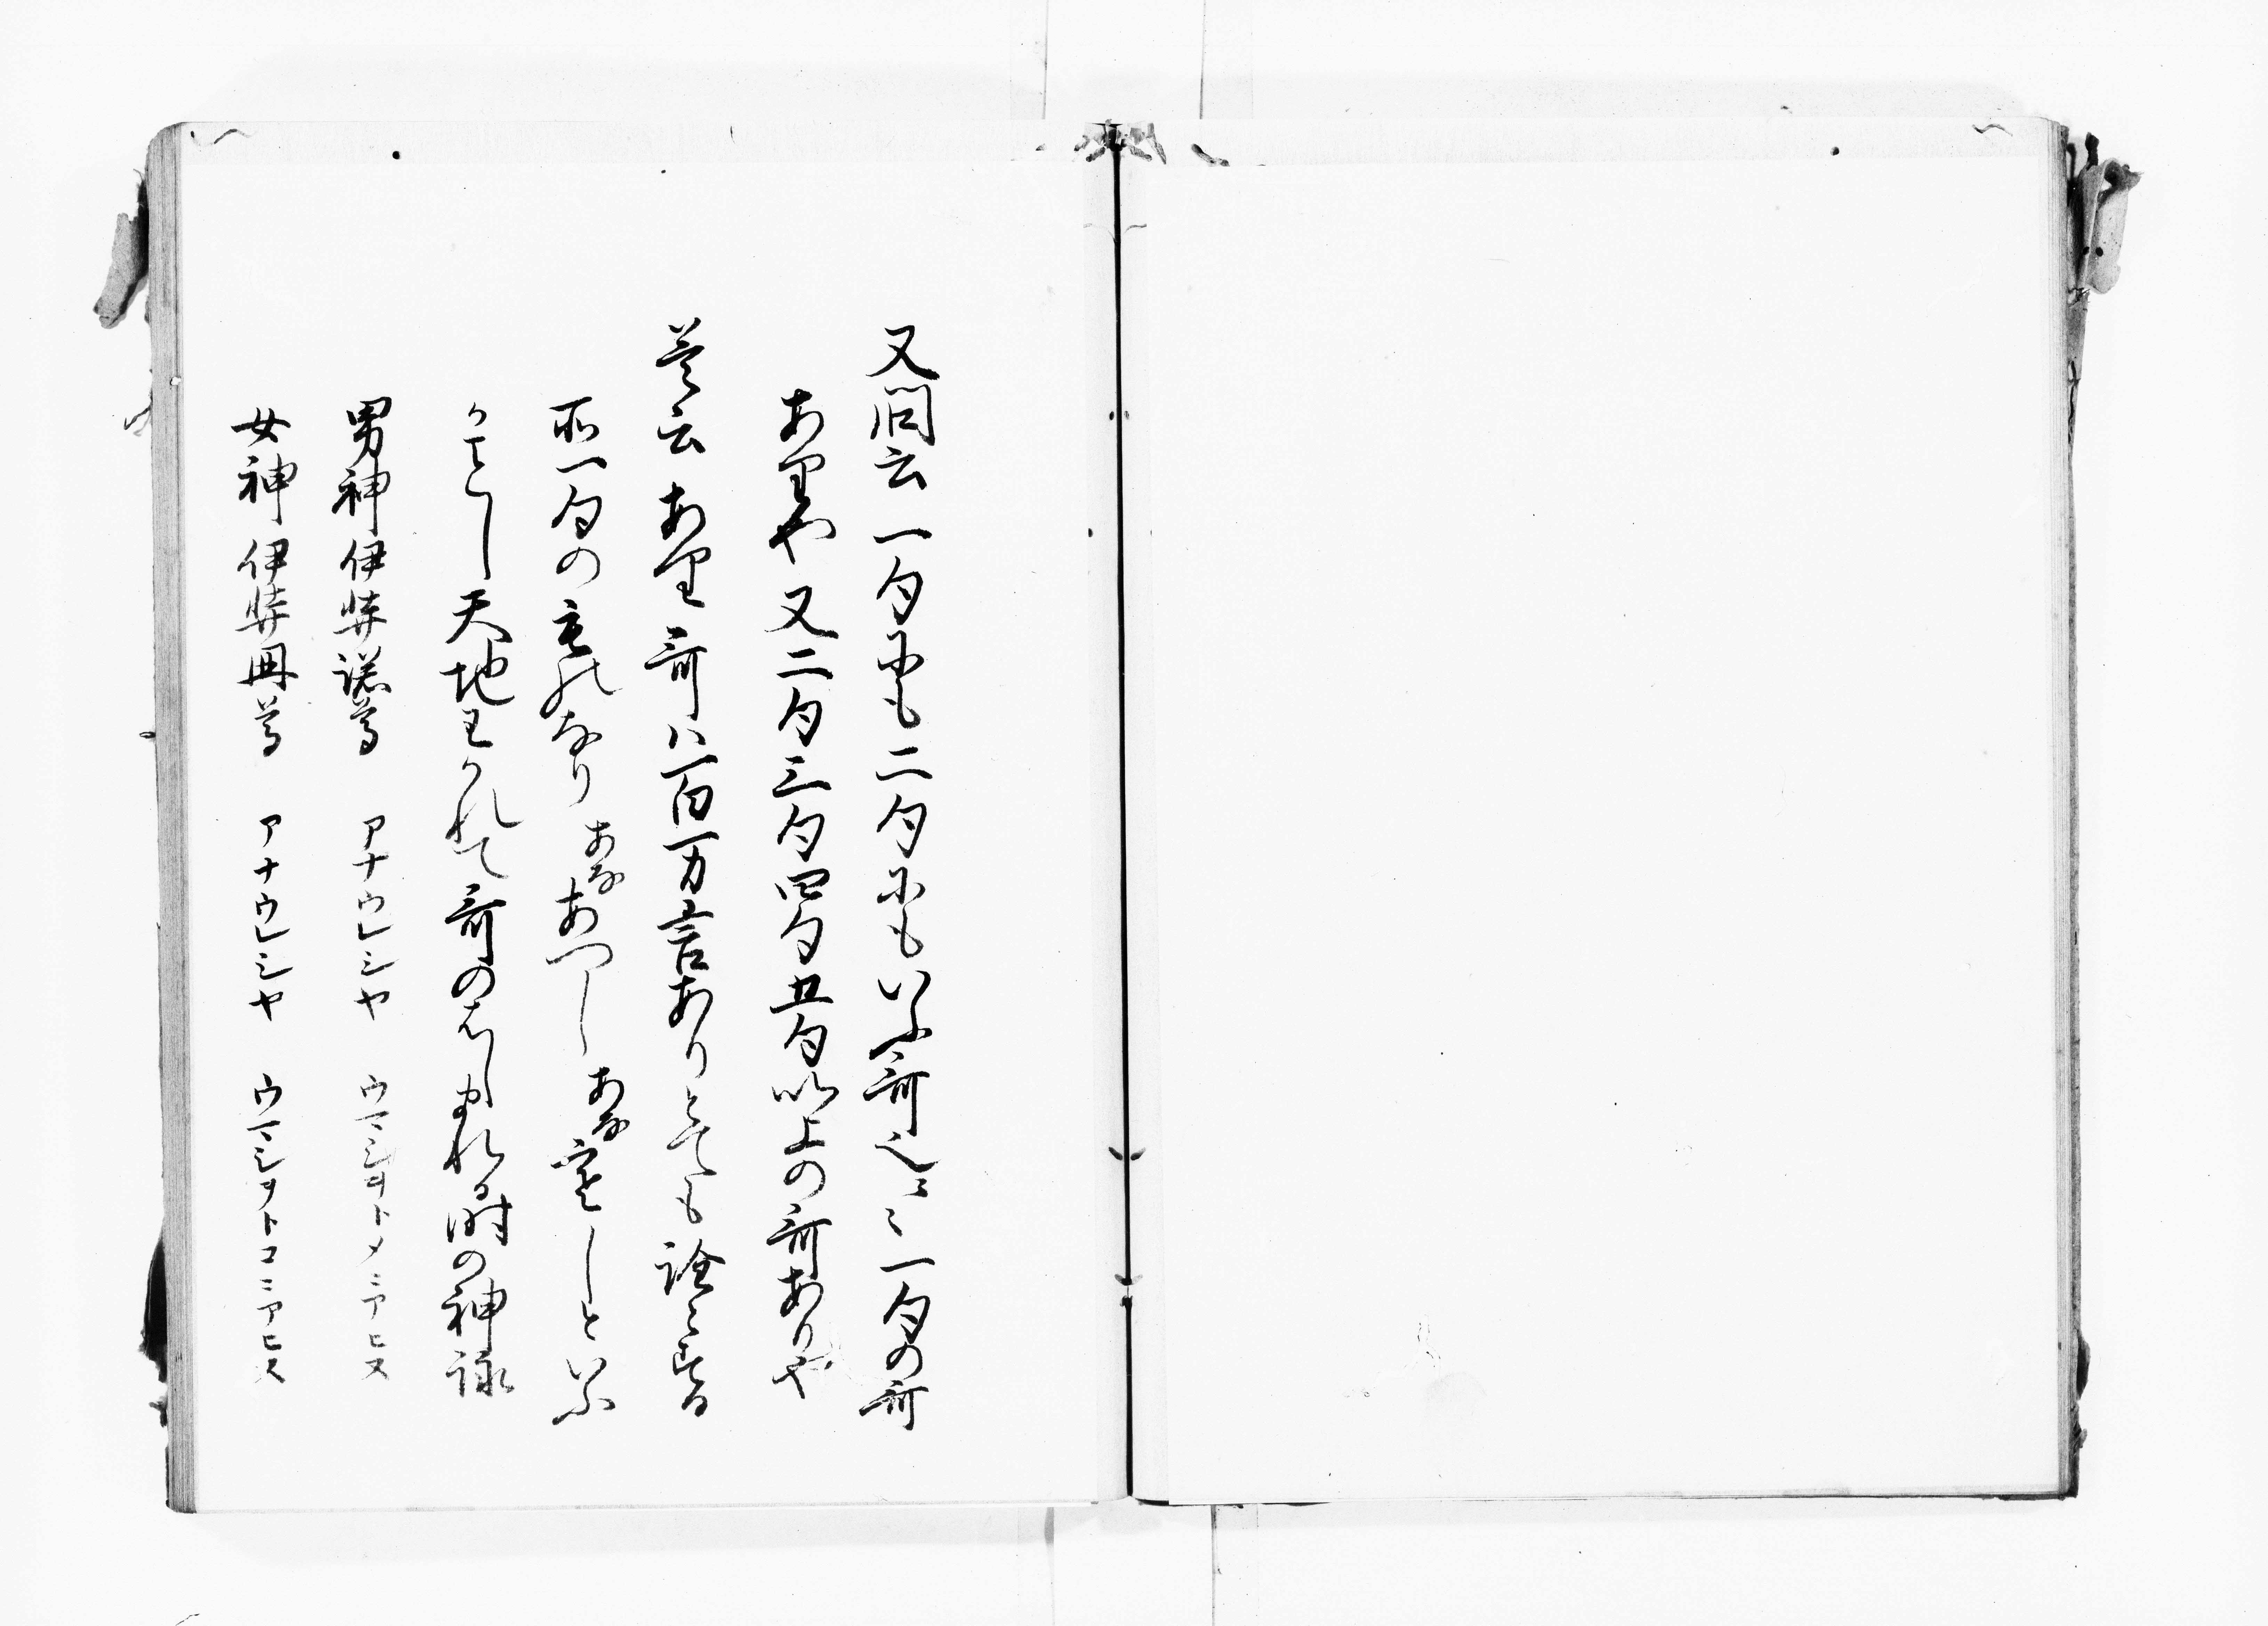 又問云一句にも二句にもいふ哥之云々一句の哥
ありや又二句三句四句五句以上の哥ありや
答云あり哥ハ百万言ありとても詮とする
所一句の主れなりあなあつしあな寒しといふ
かことし天地わかれて哥のはしまれる時の神詠
男神伊弉諾尊　アナウレシヤ　ウマシヲトメニアヒヌ
女神伊弉冊尊　アナウレシヤ　ウマシヲトコニアヒヌ